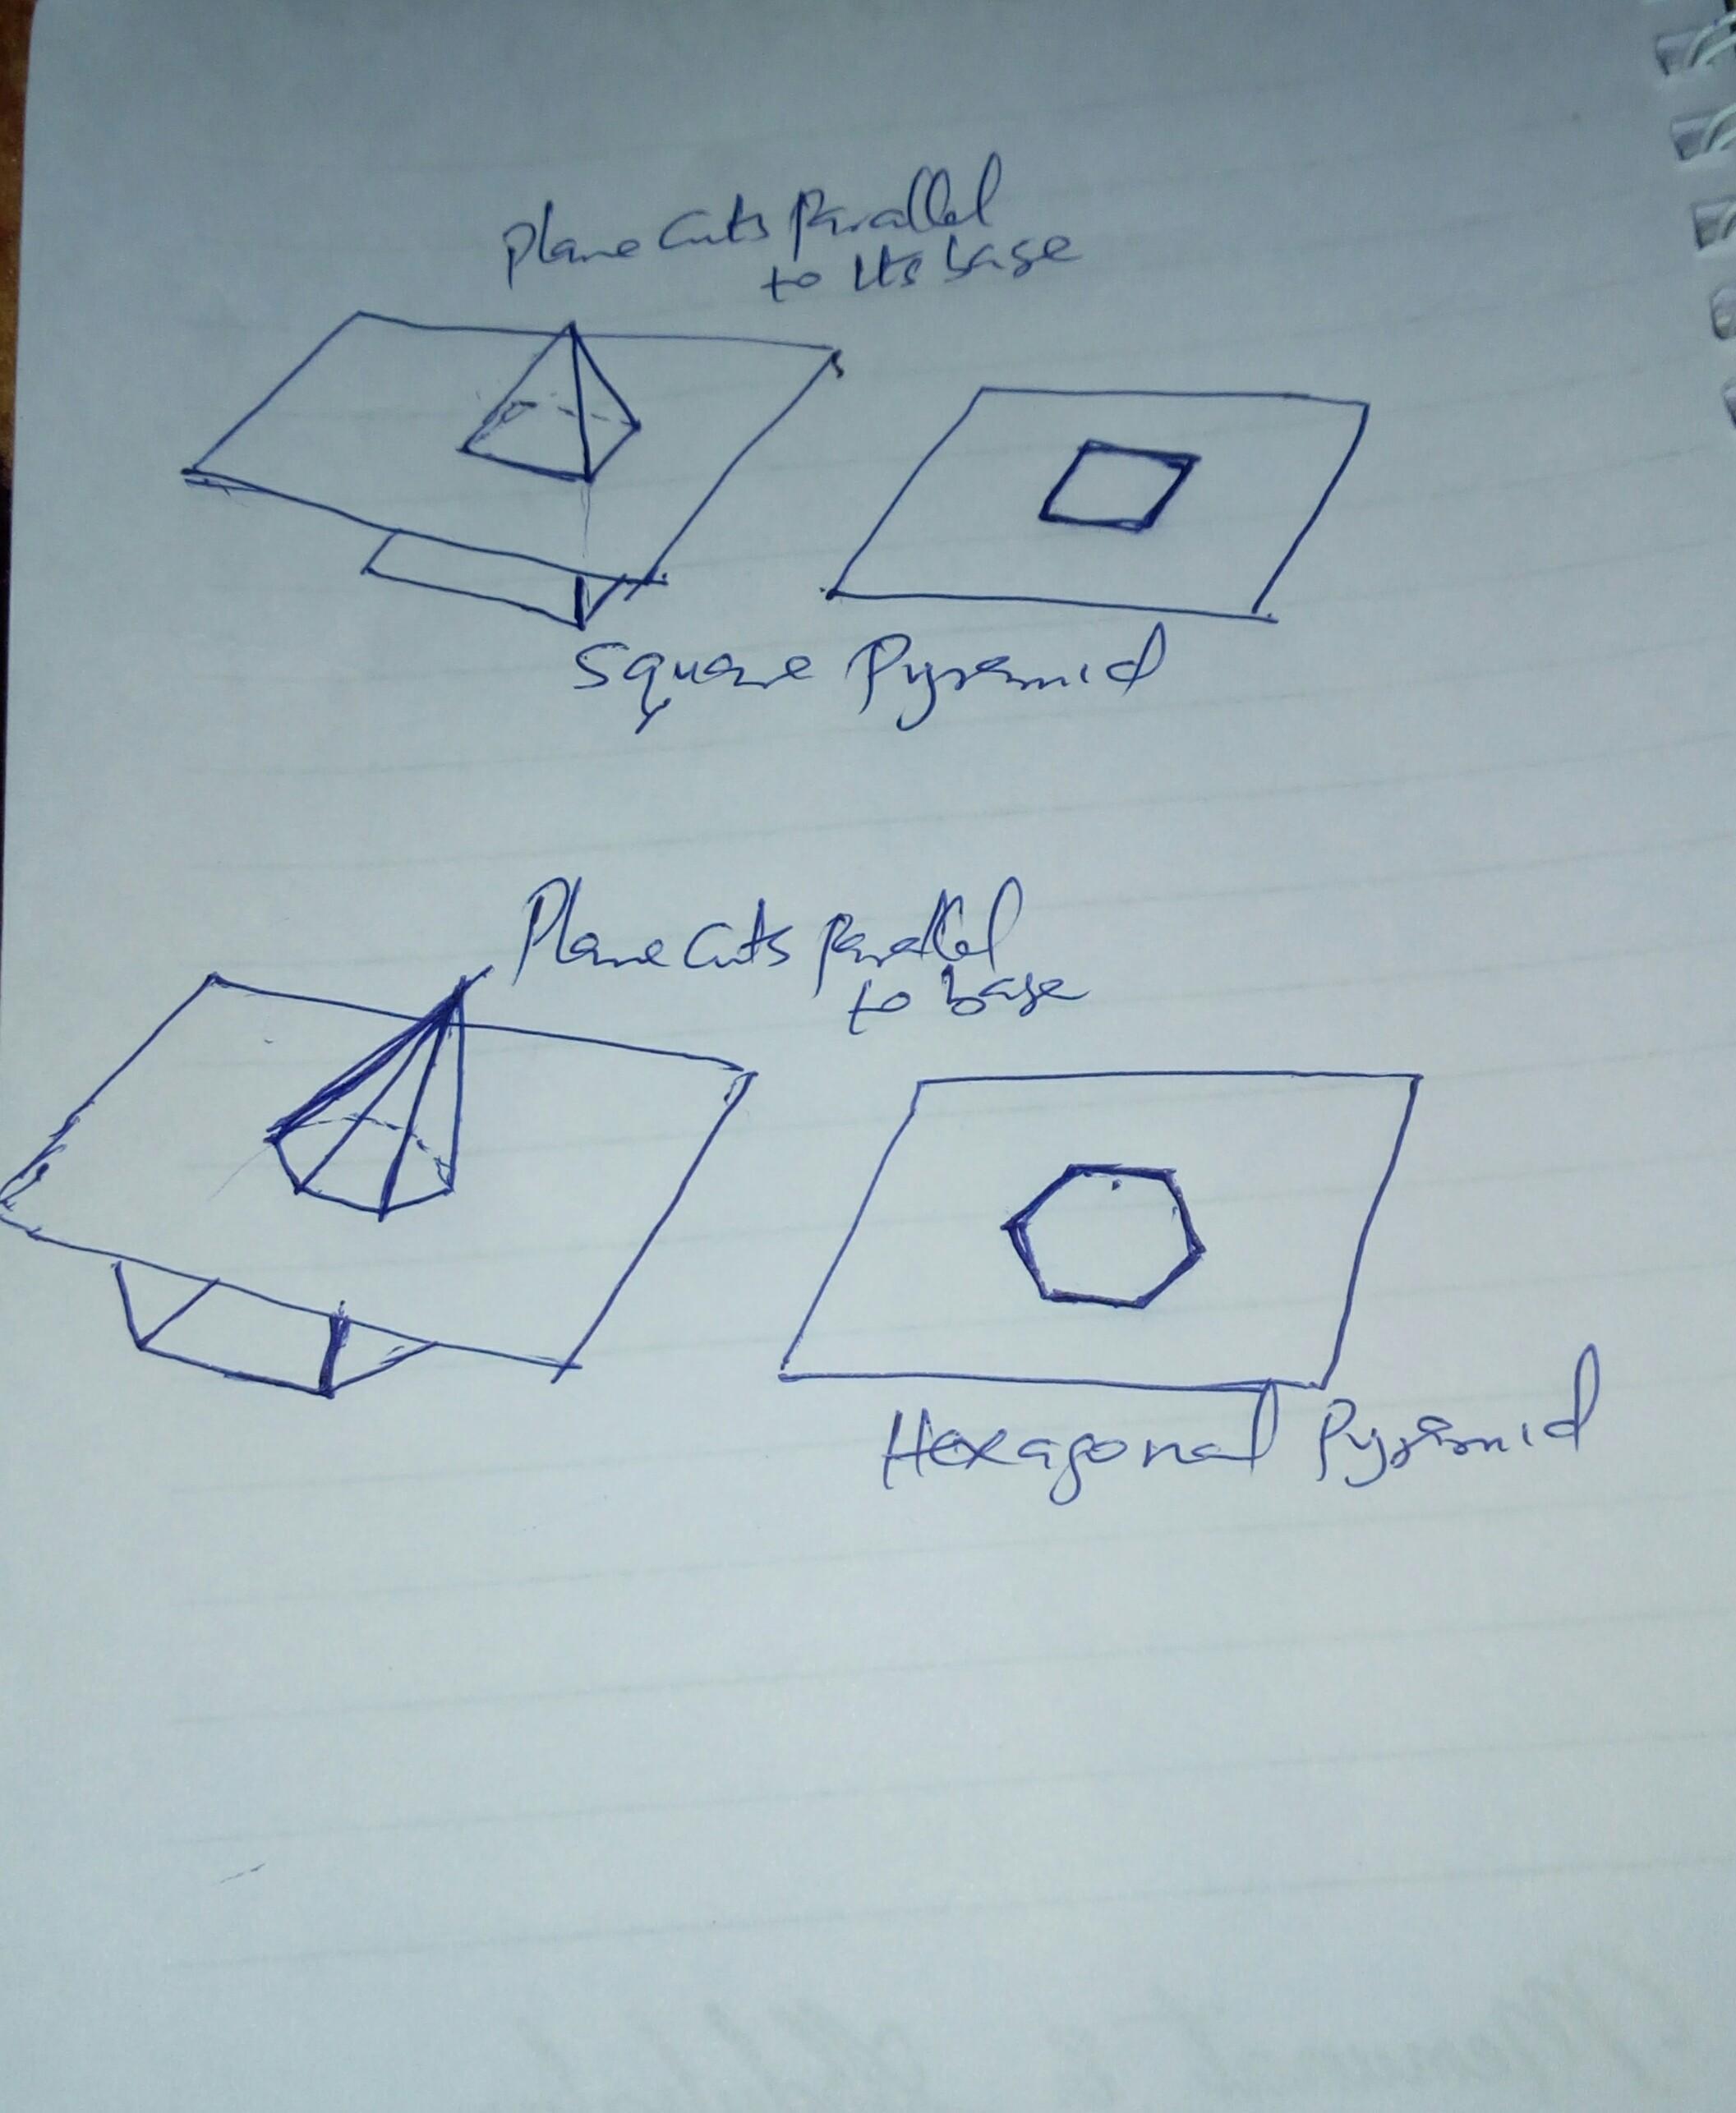 Plane cuts Parallel
to its base
Square Pyramid
Plane cuts Parallel
to base
Hexagonal Pyramid